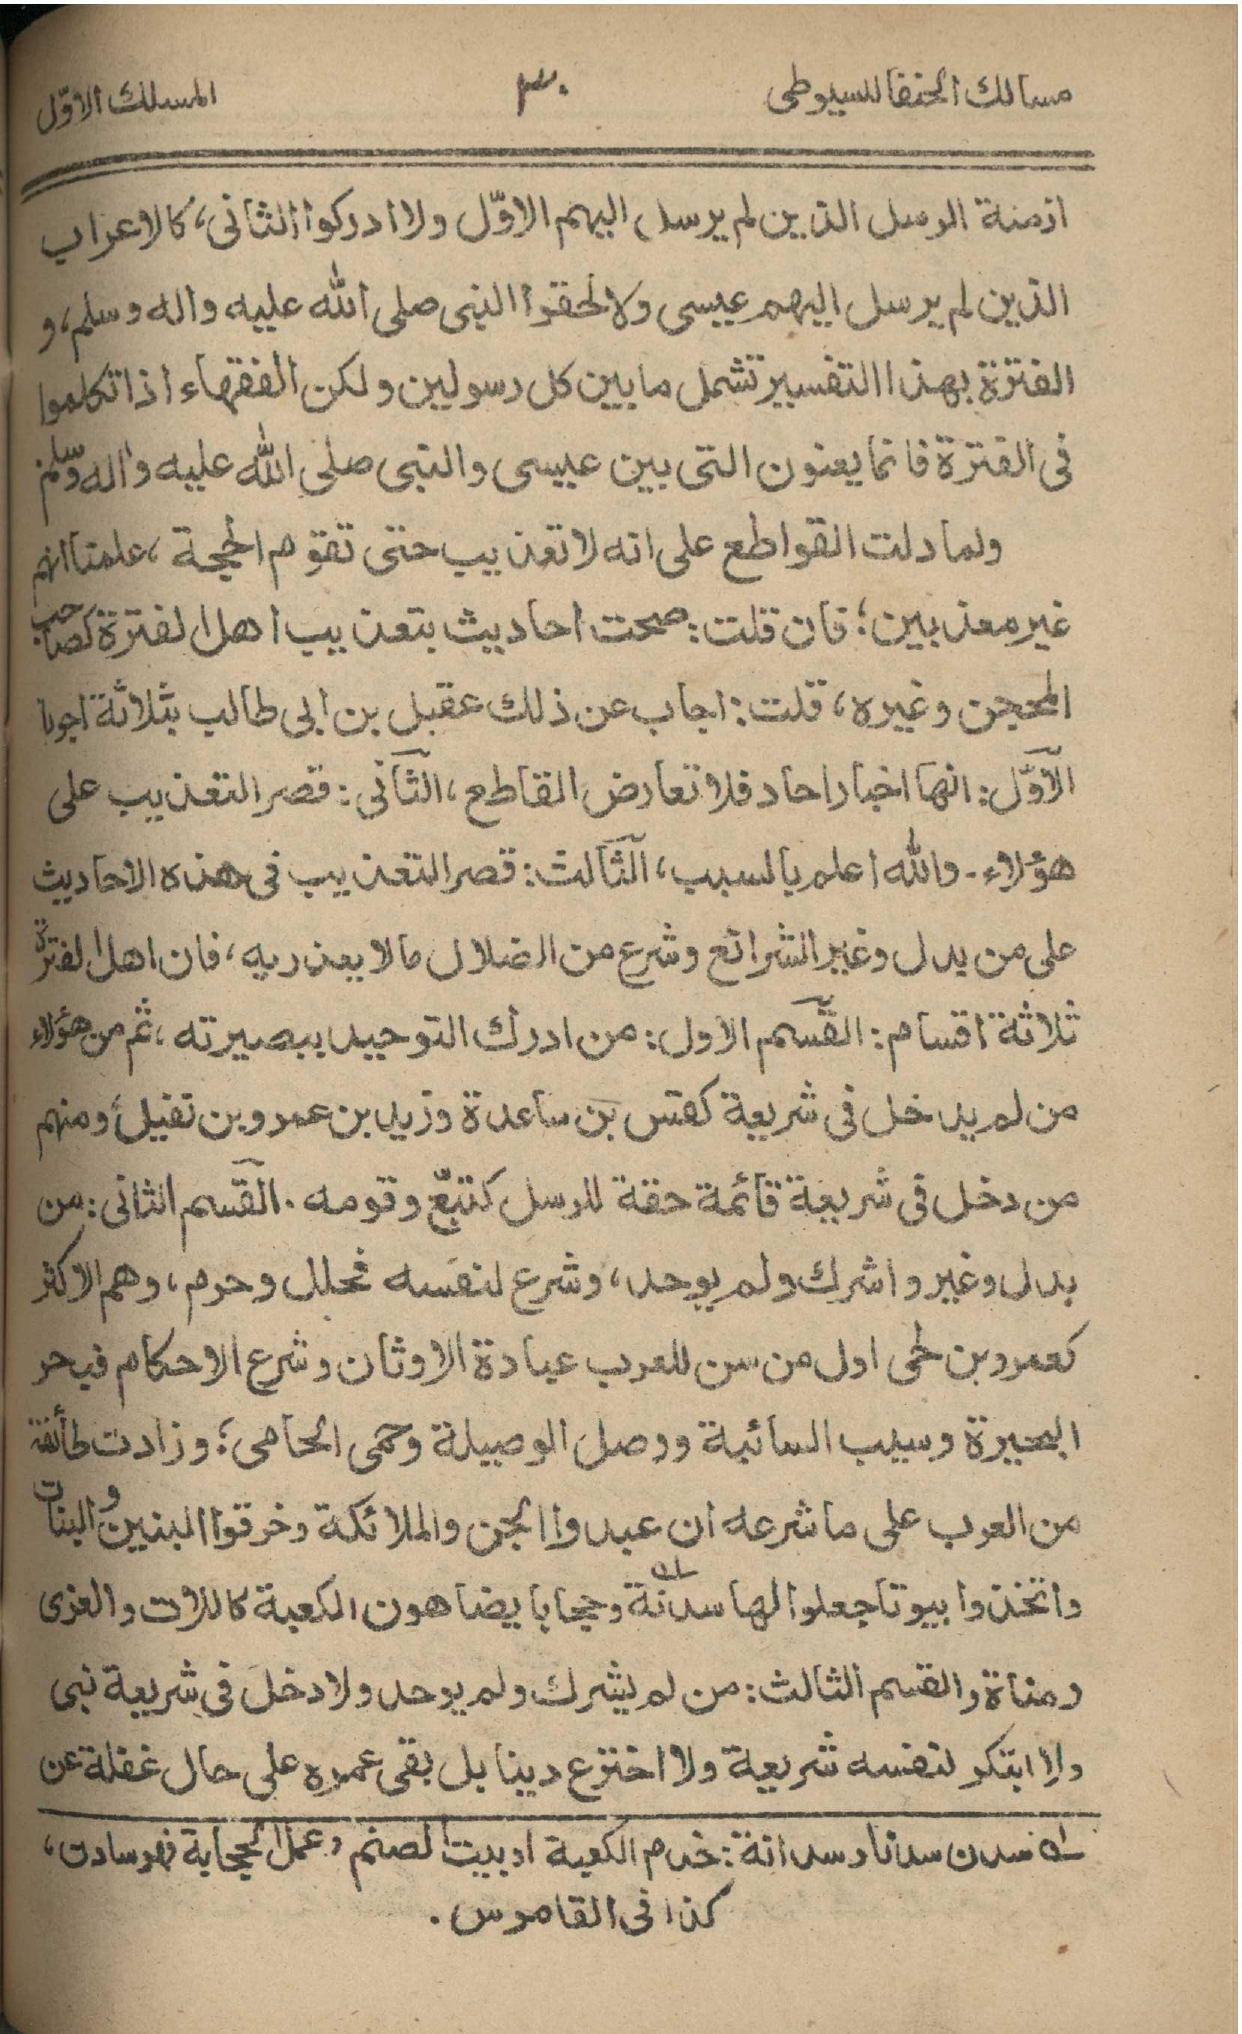 مسالك الحنفا للسيوطى ٣٠ المسلك الاوّل
ازمنة الرسل الذين لم يرسل اليهم الاوّل ولا ادركوا الثانى، كالاعراب
الذين لم يرسل اليهم عيسى ولا لحقوا النبى صلى الله عليه واله وسلم، و
الفترة بهذا التفسير تشمل ما بين كل رسولين ولكن الفقهاء اذا تكلموا
فى الفترة فانما يعنون التى بين عيسى والنبى صلى الله عليه واله وسلم
ولما دلت القواطع على انه لا تعذيب حتى تقوم الحجة، علمنا انهم
غير معذبين؛ فان قلت: صحت احاديث بتعذيب اهل الفترة كصاحب
المحجن وغيره، قلت: اجاب عن ذلك عقيل بن ابى طالب بثلاثة اجوبا
الاوّل: انها اخبار احاد فلا تعارض القاطع، الثانى: قصر التعذيب على
هؤلاء۔ والله اعلم بالسبب، الثالث: قصر التعذيب فى هذه الاحاديث
على من بدل وغير الشرائع وشرع من الضلال مالا يعذر به، فان اهل الفترة
ثلاثة اقسام: القسم الاول: من ادرك التوحيد ببصيرته، ثم من هؤلاء
من لم يدخل فى شريعة كقس بن ساعدة وزيد بن عمرو بن نفيل، ومنهم
من دخل فى شريعة قائمة حقة للرسل كتبّع وقومه. القسم الثانى: من
بدل وغير واشرك ولم يوحد، وشرع لنفسه فحلل وحرم، وهم الاكثر
كعمرو بن لحى اول من سن للعرب عبادة الاوثان وشرع الاحكام فبحر
البحيرة وسيب السائبة ووصل الوصيلة وحمى الحامى؛ وزادت طائفة
من العرب على ما شرعه ان عبدوا الجن والملائكة وخرقوا البنين والبنات
واتخذوا بيوتا جعلوا لها سدنة له وحجابا يضاهون الكعبة كاللات والعزى
ومناة والقسم الثالث: من لم يشرك ولم يوحد ولا دخل فى شريعة نبى
ولا ابتكر لنفسه شريعة ولا اخترع دينا بل بقى عمره على حال غفلة عن
له سدن سدنا وسدانة: خدم الكعبة او بيت الصنم وعمل الحجابة فهو سادن،
كذا فى القاموس.